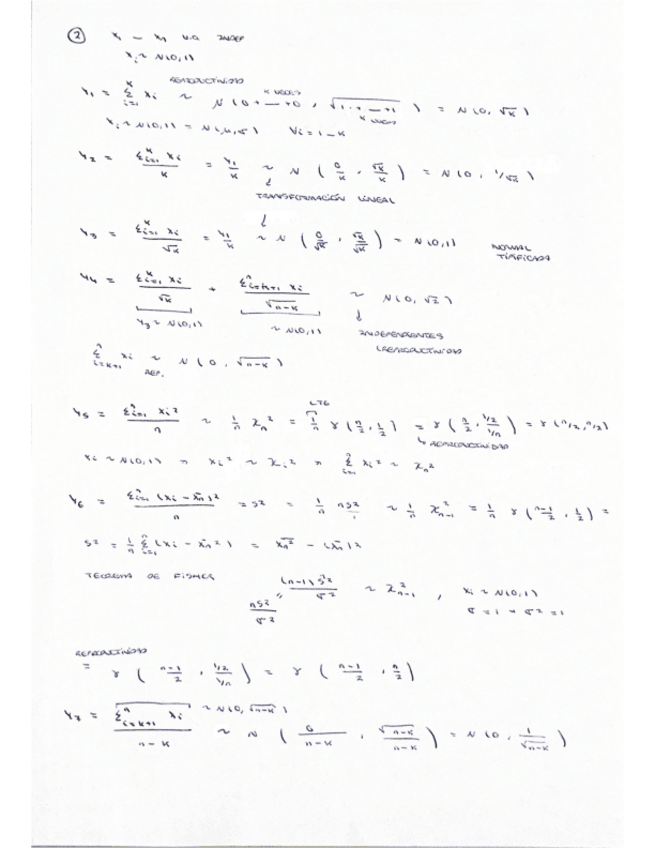 ② X₁ — Xₙ v.a INDEP
Xᵢ ~ N(0,1)
REPRODUCTIVIDAD
Y₁ = Σᵢ₌₁ᴷ Xᵢ ~ N(0 + — + 0, √(1 + — + 1)) = N(0, √K)
K VECES
K VECES
Xᵢ ~ N(0,1) = N(μ,σ) ∀i = 1 - K
Y₂ = Σᵢ₌₁ᴷ Xᵢ / K = Y₁/K ~ N(0/K, √K/K) = N(0, 1/√K)
↓
TRANSFORMACIÓN LINEAL
↓
Y₃ = Σᵢ₌₁ᴷ Xᵢ / √K = Y₁/K ~ N(0/√K, √K/√K) = N(0,1)
NORMAL
TIPIFICADA
Y₄ = Σᵢ₌₁ᴷ Xᵢ / √K + Σⁿᵢ₌ₖ₊₁ Xᵢ / √(n-K) ~ N(0, √2)
Y₃ ~ N(0,1) ~ N(0,1) ↓ INDEPENDIENTES
(REPRODUCTIVIDAD
Σⁿᵢ₌ₖ₊₁ Xᵢ ~ N(0, √(n-K))
REP.
LTG
Y₅ = Σⁿᵢ₌₁ Xᵢ² / n ~ 1/n χₙ² = 1/n γ(n/2, 1/2) = γ(n/2, (1/2)/(1/n)) = γ(n/2, n/2)
↳ REPRODUCTIVIDAD
Xᵢ ~ N(0,1) ⇒ Xᵢ² ~ χ₁² ⇒ Σⁿᵢ₌₁ Xᵢ² ~ χₙ²
Y₆ = Σⁿᵢ₌₁ (Xᵢ - x̄ₙ)² / n = S² = 1/n nS² ~ 1/n χ²ₙ₋₁ = 1/n γ(n-1/2, 1/2) =
S² = 1/n Σⁿᵢ₌₁ (Xᵢ - x̄ₙ²) = x̄ₙ² - (x̄ₙ)²
TEOREMA DE FISHER
(n-1)Ŝ² / σ² ~ χ²ₙ₋₁, Xᵢ ~ N(0,1)
nS² / σ² = σ = 1 → σ² = 1
REPRODUCTIVIDAD
= γ((n-1)/2, (1/2)/(1/n)) = γ((n-1)/2, n/2)
Y₇ = Σⁿᵢ₌ₖ₊₁ Xᵢ ~ N(0, √(n-K)) / (n-K) ~ N(0/(n-K), √(n-K)/(n-K)) = N(0, 1/√(n-K))